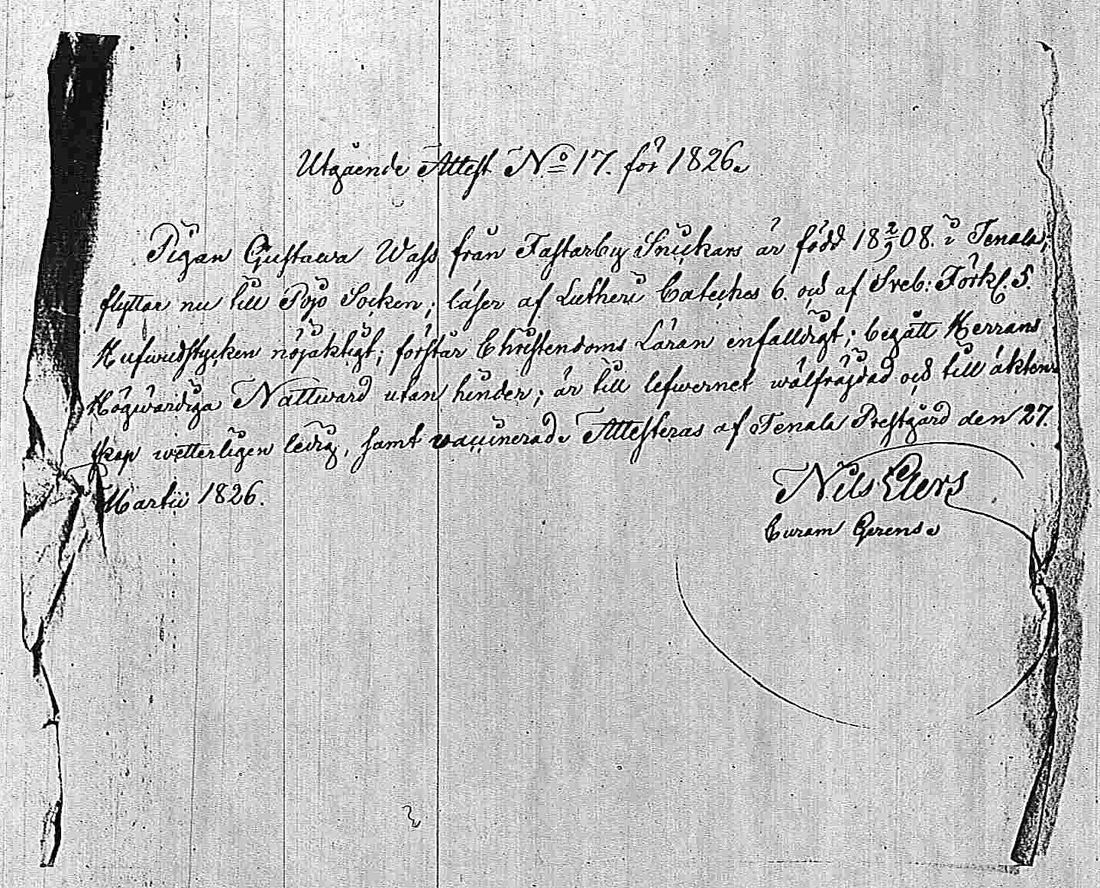 Utgående Attest No 17. för 1826.
Pigan Gustawa Wass från Fastarby Snickars är född 18 2/9 08. i Tenala;
flyttar nu till Pojo Socken; läser af Lutheri Cateches 6. och af Sveb: Förkl. 5.
Hufwudstycken nöjaktigt; förstår Christendoms Läran enfalldigt; begått Herrans
Högwärdiga Nattward utan hinder; är till lefwernet wälfräjdad och till äkten-
skap wetterligen ledig, samt vaccinerad. Attesteras af Tenala Prestgård den 27.
Martii 1826.
Nils Elers
Curam Gerens.